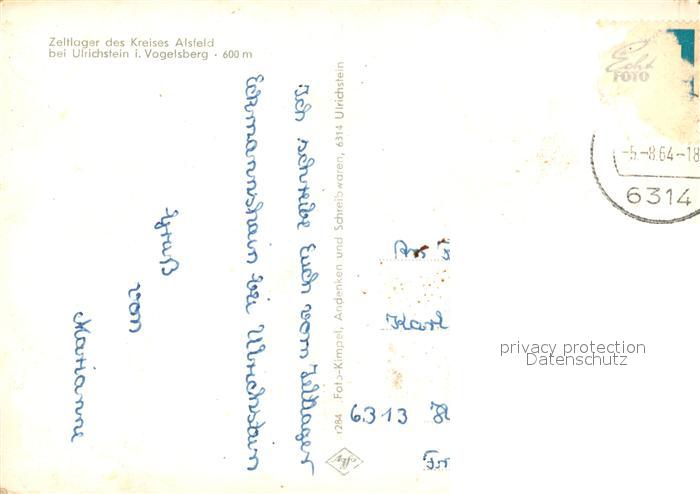 Zeltlager des Kreises Alsfeld
bei Ulrichstein i. Vogelsberg · 600 m
Ich schreibe Euch vom Zeltlager
Eckmannshain bei Ulrichstein
Gruß
von
Marianne
r284 Foto-Kimpel, Andenken und Schreibwaren, 6314 Ulrichstein
Echt
FOTO
-5.-8.64-18
6314
Karl
6313
privacy protection
Datenschutz